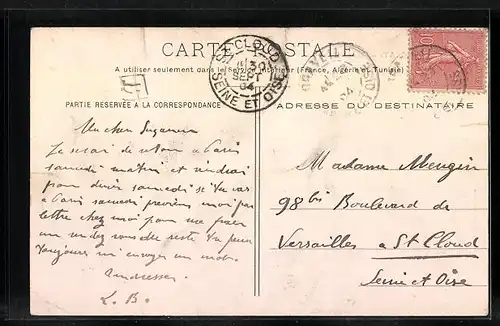 CARTE POSTALE
A utiliser seulement dans le Service Intérieur (France, Algérie et Tunisie)
ST CLOUD
30
SEPT
04
SEINE ET OISE
10
PARTIE RESERVÉE A LA CORRESPONDANCE
ADRESSE DU DESTINATAIRE
Mon cher
Je serai de retour à Paris
samedi matin et viendrai
pour dîner samedi si tu vas
à Paris samedi préviens moi par
lettre chez moi pour me fixer
un rendez vous elle reste tu peux
toujours m'envoyer un mot.
L. B.
Madame Mengin
98bis Boulevard de
Versailles à St Cloud
Seine et Oise